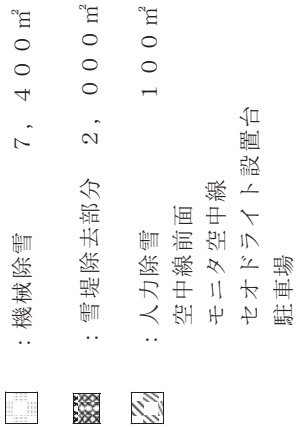 ：機械除雪　　７，４００㎡
：雪堤除去部分　２，０００㎡
：人力除雪　　１００㎡
空中線前面
モニタ空中線
セオドライト設置台
駐車場